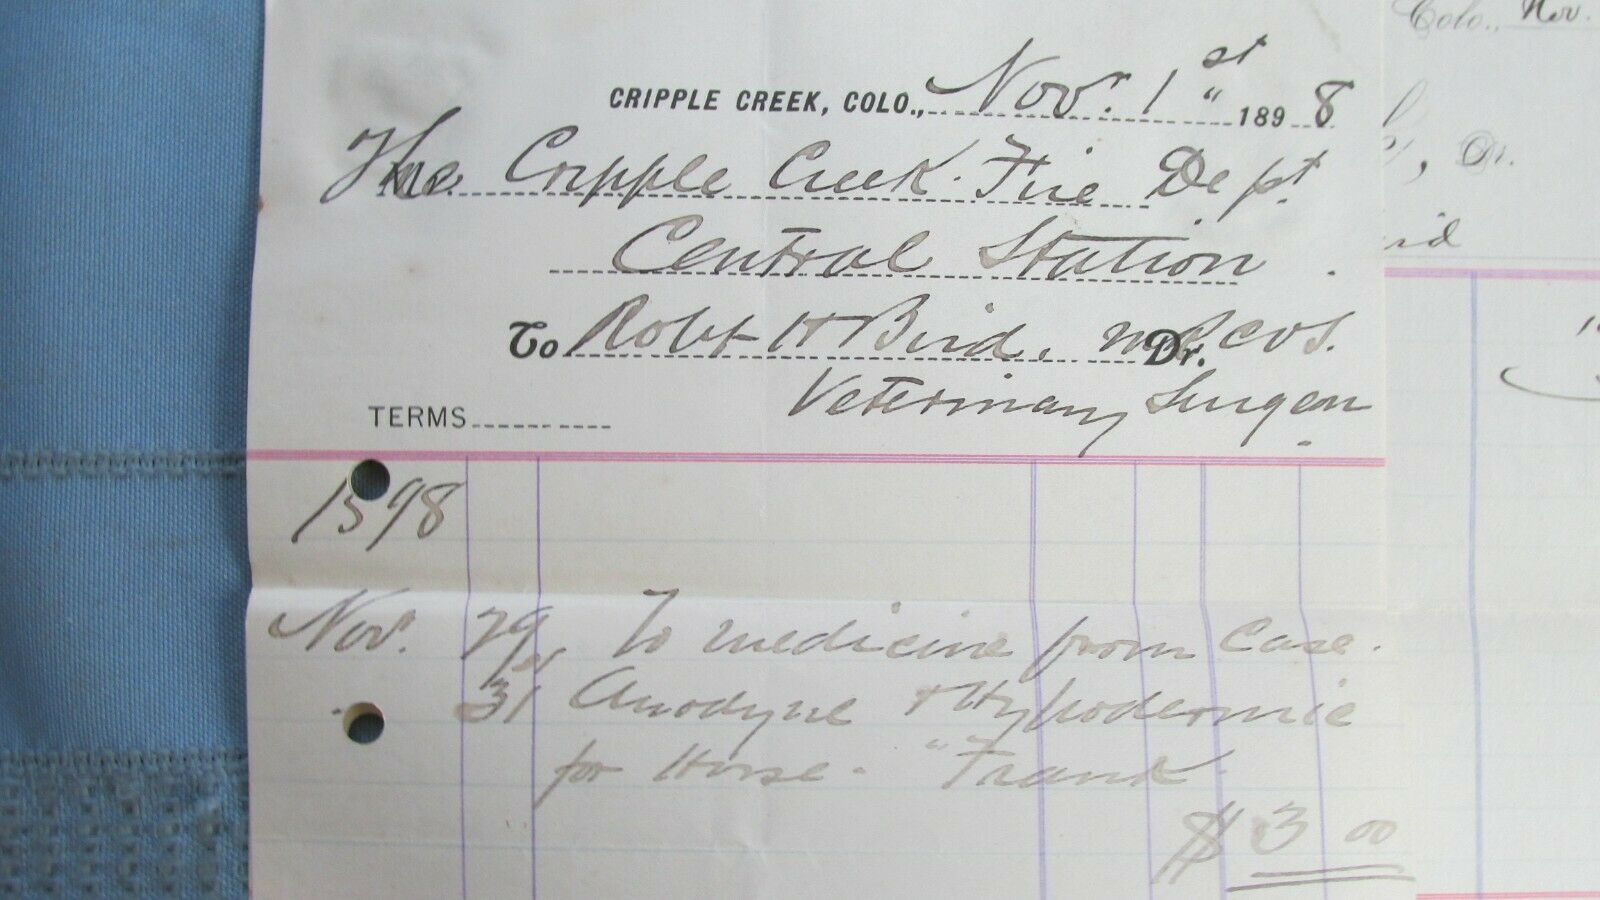 CRIPPLE CREEK, COLO., Nov. 1st 1898
The Cripple Creek Fire Dept
Central Station.
To Robt H Bird. M R C V S. Dr.
Veterinary Surgeon
TERMS
1898
Nov. 29 To medicine from Case.
31st Anodyne & Hypodermic
for Horse. "Frank"
$3 00
Colo., Nov.
Dr.